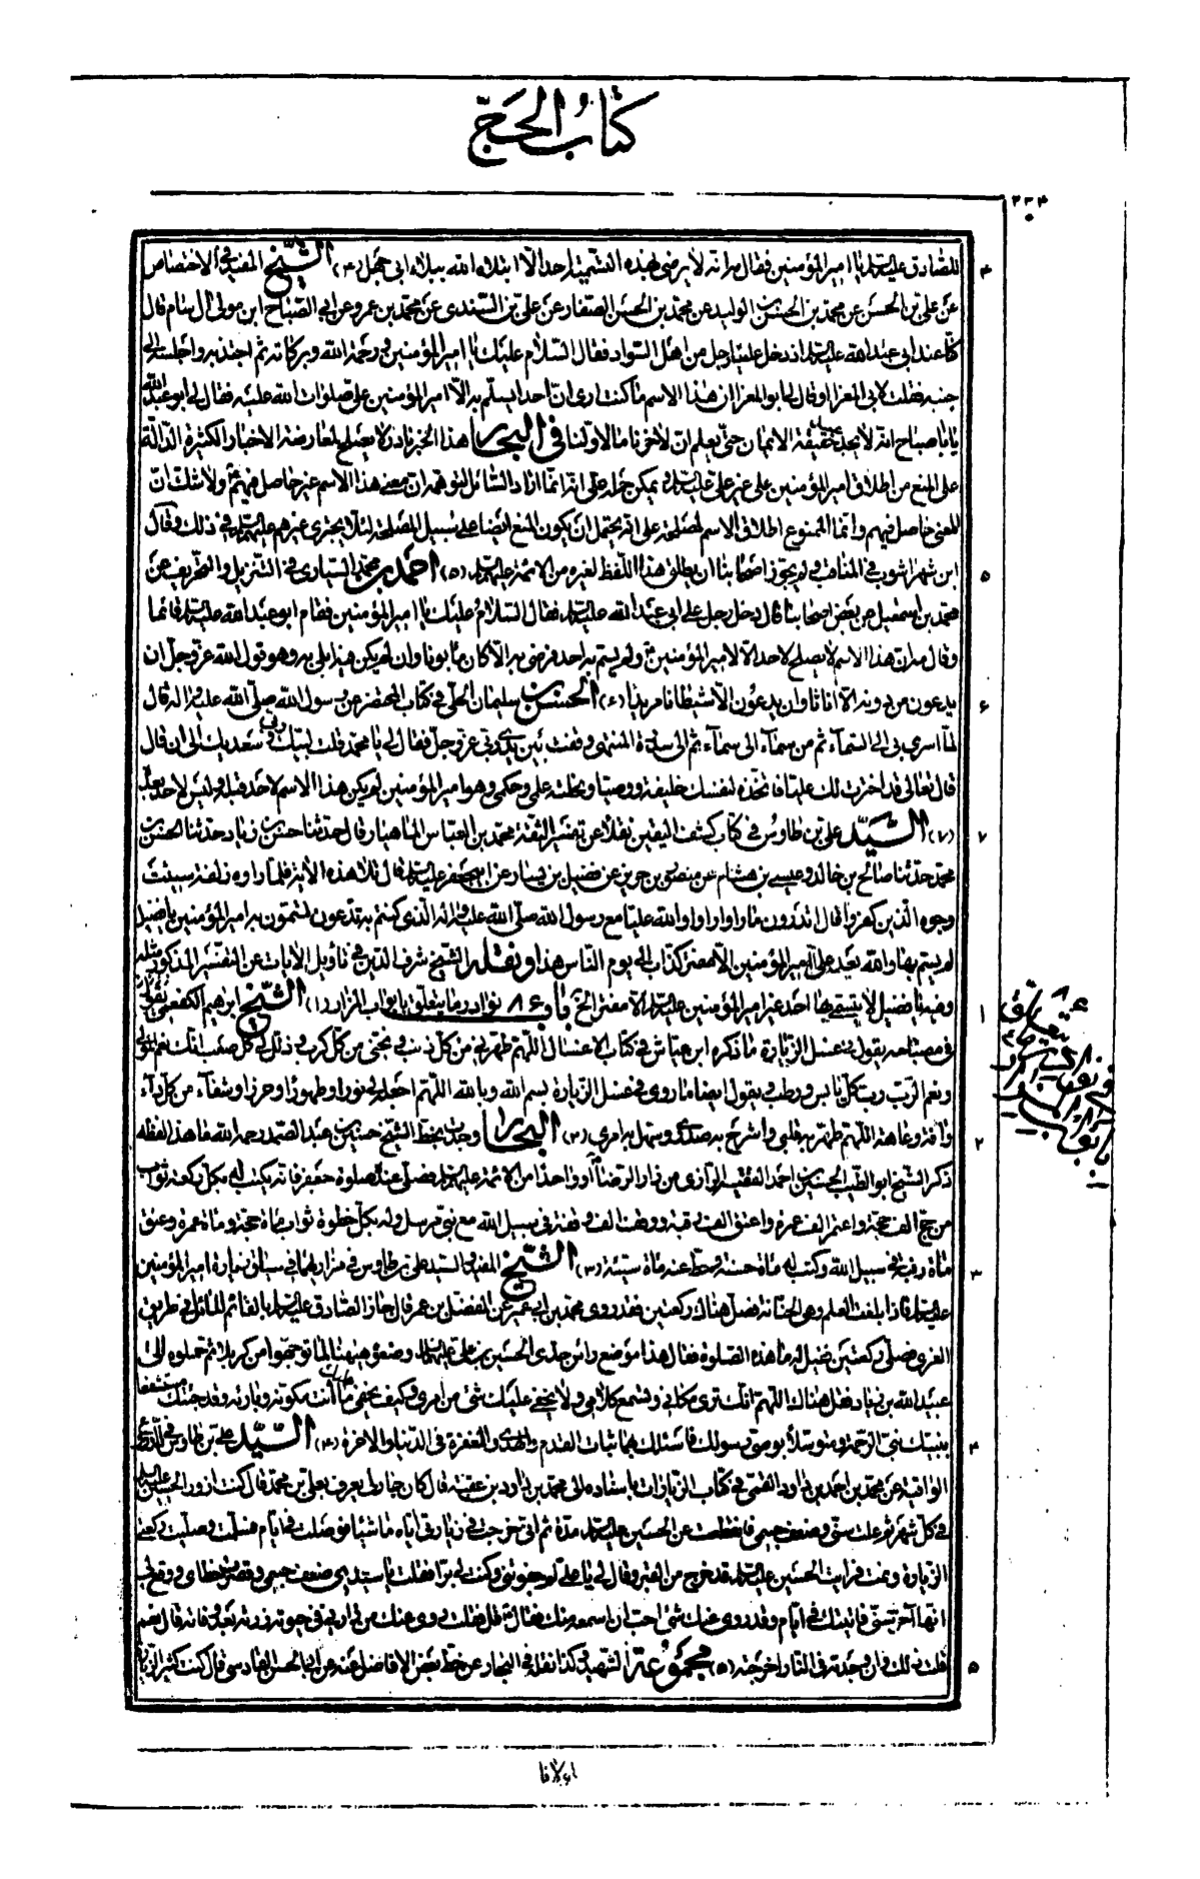 كتاب الحج
٢٣٤
٤ للصادق عليه السلام يا امير المؤمنين فقال مه انه لا يرضى بهذه التسمية احد الا ابتلاه الله ببلاء ابى جهل (٤) الشيخ المفيد في الاختصاص
عن على بن الحسن عن محمد بن الحسن بن الوليد عن محمد بن الحسن الصفار عن على بن السندى عن محمد بن عمرو عن ابى الصباح ابن مولى ال سام قال
كنا عند ابى عبد الله عليه السلام اذ دخل علينا رجل من اهل السواد فقال السلام عليك يا امير المؤمنين ورحمة الله وبركاته ثم اجتذبه واجلسه الى
جنبه فقلت لابى المعزا او قال لى ابو المعزا ان هذا الاسم ما كنت ارى ان احدا يسلم به الا امير المؤمنين على صلوات الله عليه فقال لى ابو عبد الله
يا ابا صباح انه لا يجد عبد حقيقة الايمان حتى يعلم ان لاخرنا ما لاولنا في البحار هذا الخبر نادر لا يصلح لمعارضة الاخبار الكثيرة الدالة
على المنع من اطلاق امير المؤمنين على غير على عليه السلام و يمكن حمله على انه انما اراد السائل لتوهمه ان معنى هذا الاسم غير حاصل فيهم ولا شك ان
المعنى حاصل فيهم وانما الممنوع اطلاق الاسم لمصلحة على انه يحتمل ان يكون المنع ايضا على سبيل المصلحة لئلا يجترى غيرهم عليهم السلام في ذلك وقال
٥ ابن شهراشوب في المناقب ولم يجوز اصحابنا ان يطلق هذا اللفظ لغيره من الائمة عليهم السلام (٥) احمد بن محمد السيارى في التنزيل والتحريف عن
محمد بن اسمعيل عن بعض اصحابنا قال دخل رجل على ابى عبد الله عليه السلام فقال السلام عليك يا امير المؤمنين فقام ابو عبد الله عليه السلام قائما
وقال مه ان هذا الاسم لا يصلح لاحد الا لامير المؤمنين ولم يسم به احد فرضى به الا كان مأبونا وان لم يكن فيه ابلى به وهو قول الله عز وجل ان
٦ يدعون من دونه الا اناثا وان يدعون الا شيطانا مريدا (٦) الحسن بن سليمان الحلى في كتاب المحتضر عن رسول الله صلى الله عليه واله قال
لما اسرى بى الى السماء ثم من سماء الى سماء ثم الى سدرة المنتهى وقفت بين يدى ربى عز وجل فقال لى يا محمد قلت لبيك ربى وسعديك الى ان قال
قال تعالى قد اخترت لك عليا فاتخذه لنفسك خليفة ووصيا و نحلته علمى وحكمى وهو امير المؤمنين لم يكن هذا الاسم لاحد قبله وليس لاحد بعده
٧ (٧) السيد على بن طاوس في كتاب كشف اليقين نقلا عن تفسير الثقة محمد بن العباس الماهيار قال حدثنا حسن بن زياد حدثنا الحسن بن
محمد حدثنا صالح بن خالد وعبيس بن هشام عن منصور بن حريز عن فضيل بن يسار عن ابى جعفر عليه السلام قال تلا هذه الاية فلما راوه زلفة سيئت
وجوه الذين كفروا قال اتدرون ما راوا راوا والله عليا مع رسول الله صلى الله عليه واله الذى كنتم به تدعون تسمون به امير المؤمنين يا فضيل
لم يتسم بها والله بعد على امير المؤمنين الا مفتر كذاب الى يوم الناس هذا ونقله الشيخ شرف الدين في تأويل الايات عن التفسير المذكور مثله
١ وفيه يا فضيل لا يتسمى بها احد غير امير المؤمنين عليه السلام الا مفتر الخ باب ٨٦ نوادر ما يتعلق بابواب المزار (١) الشيخ ابراهيم الكفعمى يقول
في مصباحه يقول في غسل الزيارة ما ذكره ابن عياش في كتاب الاغسال اللهم طهرنى من كل ذنب ونجنى من كل كرب وذلل لى كل صعب انك نعم المولى
ونعم الرب رب كل يابس ورطب ويقول ايضا ما روى في غسل الزيارة بسم الله وبالله اللهم اجعله لى نورا وطهورا وحرزا وشفاء من كل داء
٢ وافة وعاهة اللهم طهر به قلبى واشرح به صدرى وسهل به امرى (٢) البحار وجدت بخط الشيخ حسين بن عبد الصمد رحمه الله ما هذا لفظه
ذكر الشيخ ابو الطيب الحسين بن احمد الفقيه الرازى من زار الرضا او واحدا من الائمة عليهم السلام فصلى عنده صلوة جعفر فانه يكتب له بكل ركعة ثواب
من حج الف حجة واعتمر الف عمرة واعتق الف رقبة ووقف الف وقفة في سبيل الله مع نبى مرسل وله بكل خطوة ثواب مأة حجة ومأة عمرة وعتق
٣ مأة رقبة في سبيل الله وكتب له مأة حسنة وحط عنه مأة سيئة (٣) الشيخ المفيد والسيد على بن طاوس في مزاريهما في سياق زيارة امير المؤمنين
عليه السلام فاذا بلغت العلم وهى الحنانة فصل هناك ركعتين فقد روى محمد بن ابى عمير عن المفضل بن عمر قال جاز الصادق عليه السلام بالقائم المائل في طريق
الغرى فصلى ركعتين فقيل له ما هذه الصلوة فقال هذا موضع راس جدى الحسين بن على عليهما السلام وضعوه هيهنا لما توجهوا من كربلا ثم حملوه الى
عبيد الله بن زياد فقل هناك اللهم انك ترى مكانى وتسمع كلامى ولا يخفى عليك شئ من امرى وكيف يخفى عليك ما انت مكونه وبارئه وقد جئتك مستشفعا
٤ بنبيك نبى الرحمة ومتوسلا بوصى رسولك فاسئلك بهما ثبات القدم والهدى والمغفرة في الدنيا والاخرة (٤) السيد على بن طاوس في الدروع
الواقية عن محمد بن احمد بن داود القمى في كتاب الزيارات باسناده الى محمد بن داود بن عقبة قال كان جار لى يعرف بعلى بن محمد قال كنت ازور الحسين عليه السلام
في كل شهر ثم علت سنى وضعف جسمى فانقطعت عن الحسين عليه السلام مدة ثم انى خرجت في زيارتى اياه ماشيا فوصلت في ايام فسلمت وصليت ركعتى
الزيارة ونمت فرايت الحسين عليه السلام قد خرج من القبر وقال لى يا على لم جفوتنى وكنت لى برا فقلت يا سيدى ضعف جسمى وقصرت خطاى ووقع لى
انها اخر سنى فاتيتك في ايام وقد روى عنك شئ احب ان اسمعه منك فقال قل فقلت روى عنك من زارنى في حيوته زرته بعد وفاته قال نعم
٥ قلت ذلك وان وجدته في النار اخرجته (٥) مجموعة الشهيد كذا نقله في البحار عن خط بعض الافاضل عنه عن ابى الحسن الفارسى قال كنت كثير الزيارة
لمولانا